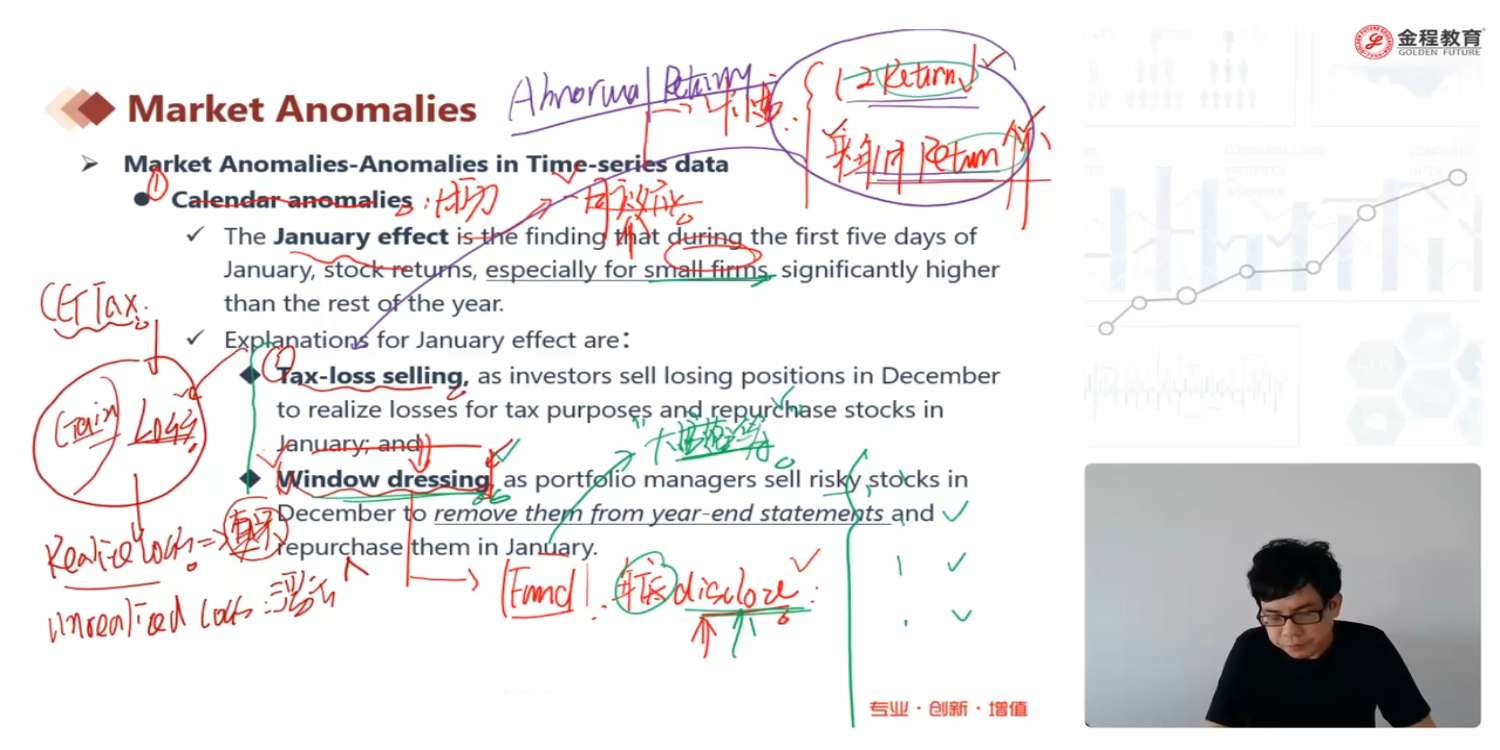 金程教育
GOLDEN FUTURE
Abnormal Return
12 Return
Market Anomalies
次年1月 Return
Market Anomalies-Anomalies in Time-series data
① Calendar anomalies
The January effect is the finding that during the first five days of
January, stock returns, especially for small firms, significantly higher
than the rest of the year.
CG Tax.
Explanations for January effect are：
① Tax-loss selling, as investors sell losing positions in December
to realize losses for tax purposes and repurchase stocks in
January; and
Gain Loss
Window dressing, as portfolio managers sell risky stocks in
December to remove them from year-end statements and
repurchase them in January.
Realize Loss =
Fund. 年底 disclose:
Unrealized Loss:
专业·创新·增值